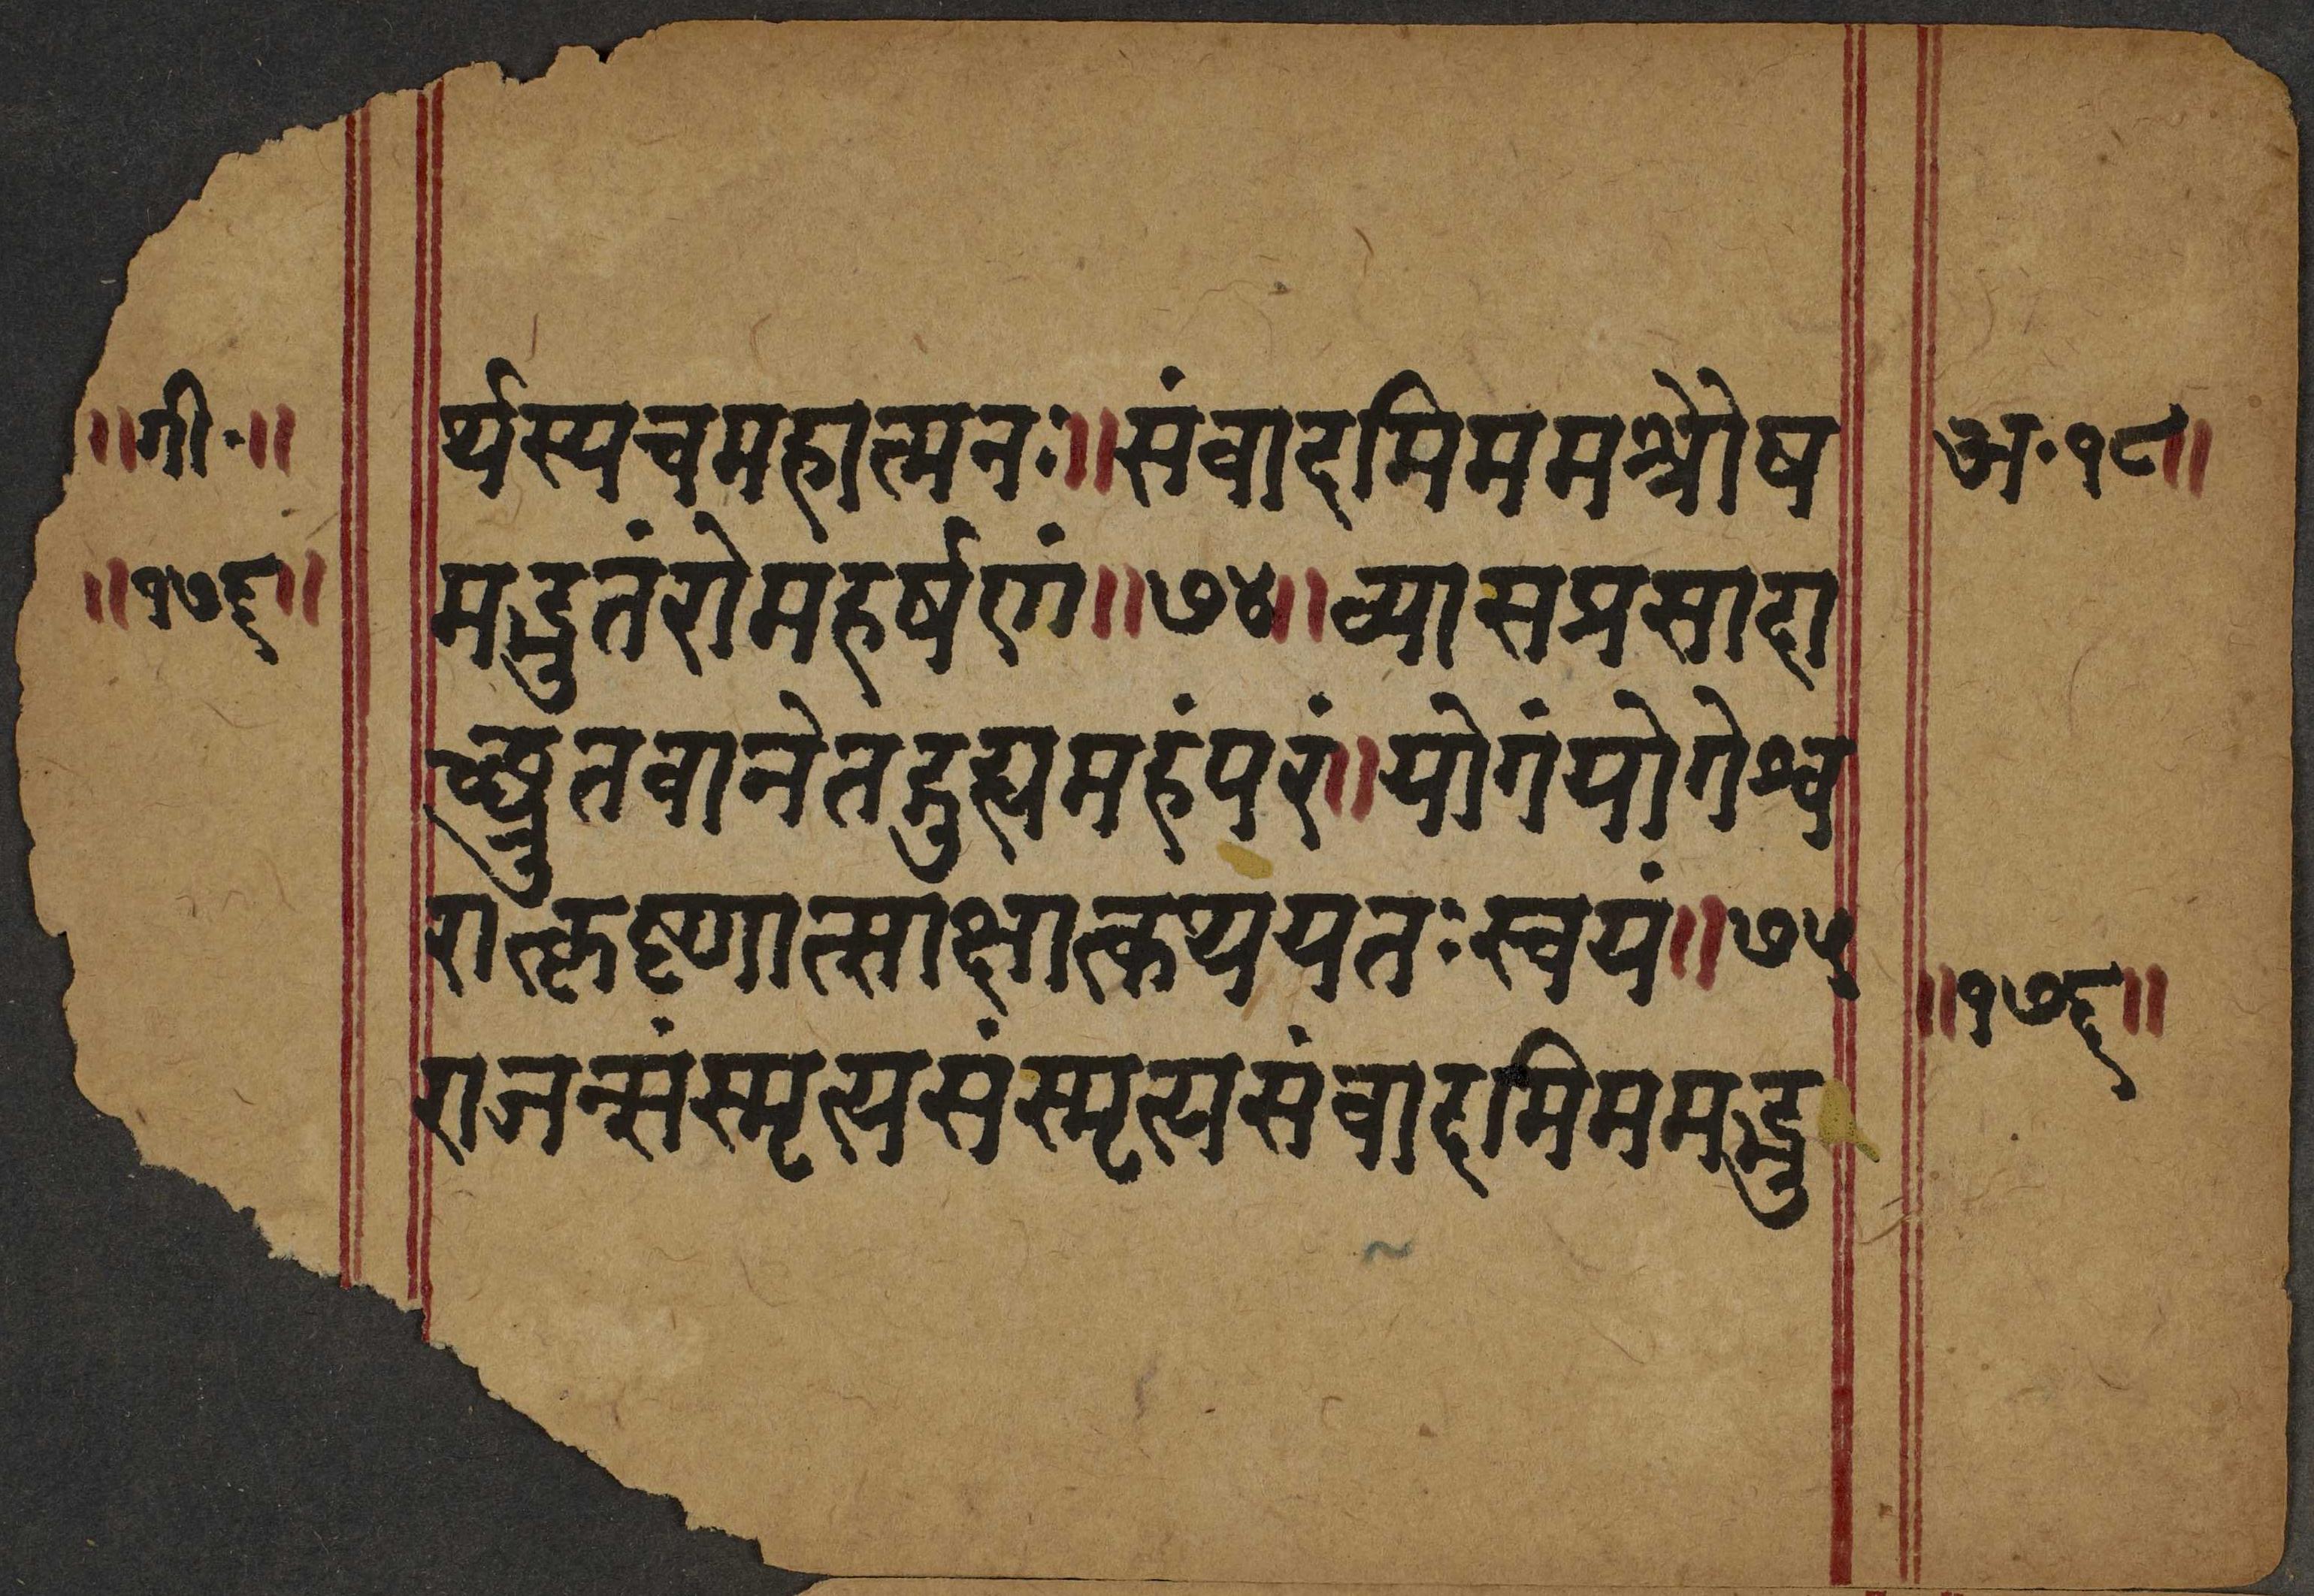 ॥गी॰॥ र्थस्यचमहात्मनः॥संवादमिममश्रौष अ॰१८॥
॥१७६॥ मद्भुतंरोमहर्षणं॥७४॥व्यासप्रसादा
च्छ्रुतवानेतद्गुह्यमहंपरं॥योगंयोगेश्व
रात्कृष्णात्साक्षात्कथयतःस्वयं॥७५
॥१७६॥
राजन्संस्मृत्यसंस्मृत्यसंवादमिममद्भु